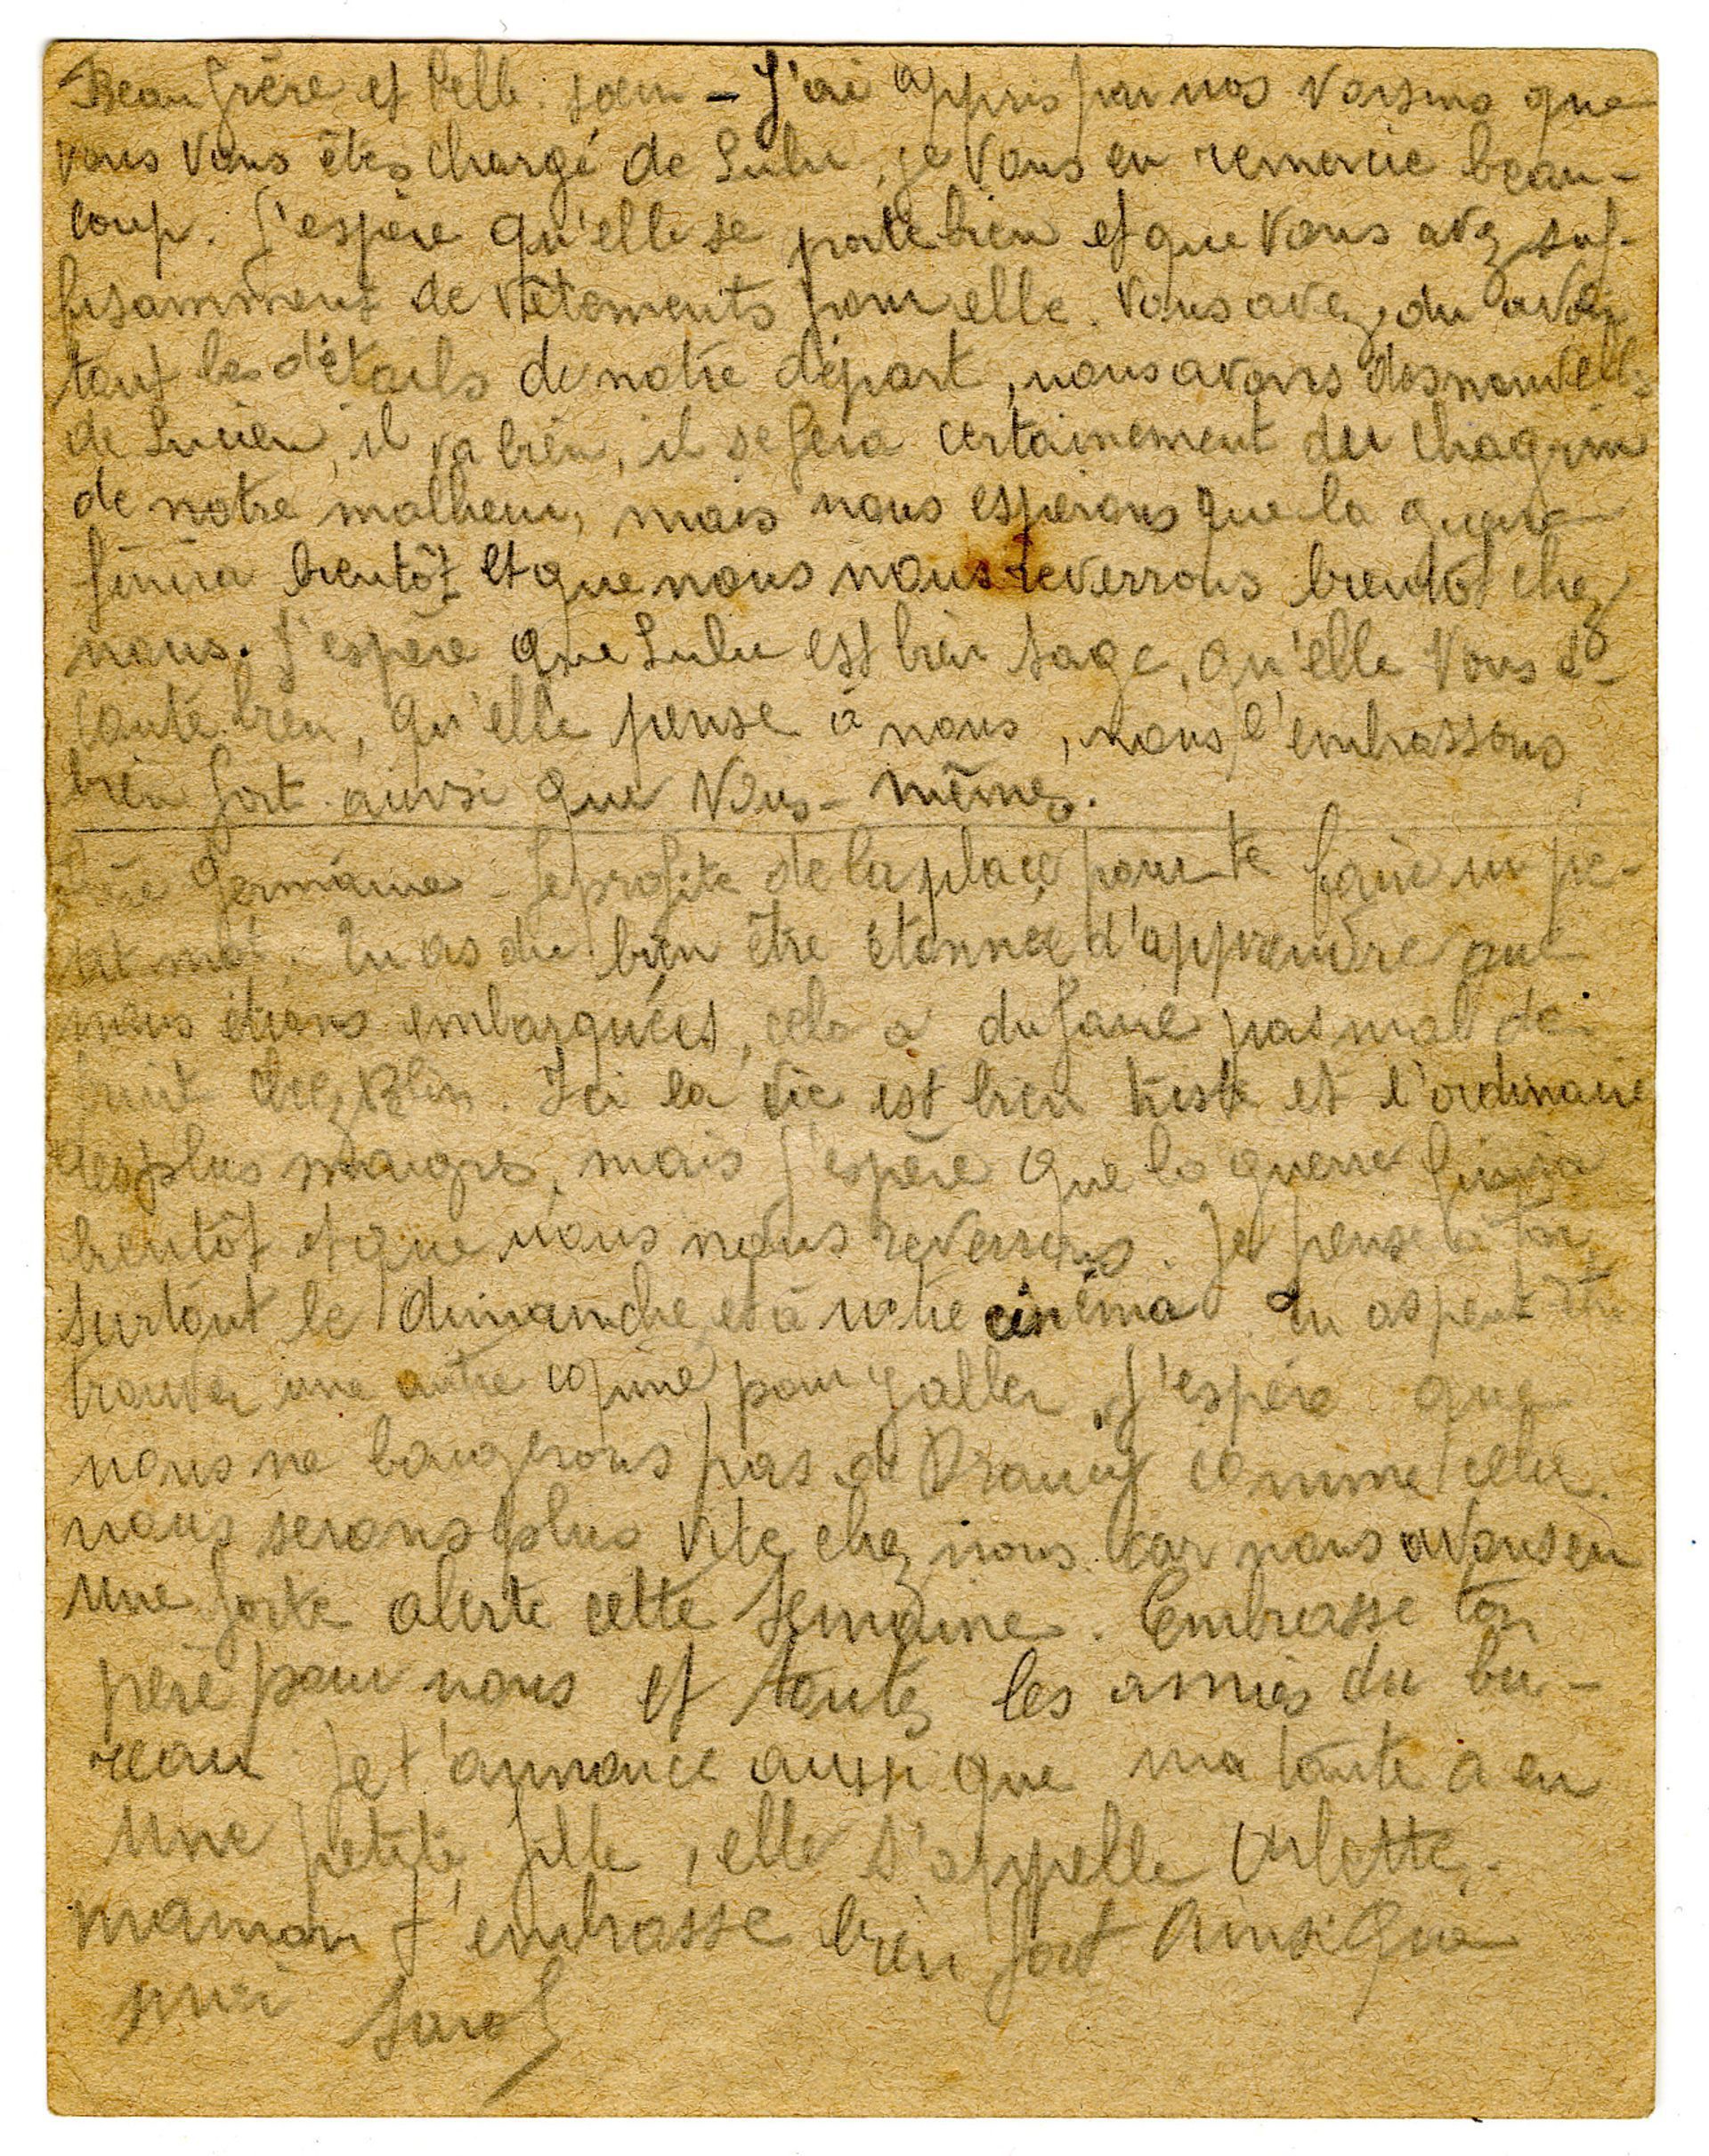 Beau frère et belle. sœur - J'ai appris par nos voisins que
vous vous êtes chargé de Lulu, je vous en remercie beau-
coup. J'espère qu'elle se porte bien et que vous avez suf-
fisamment de vêtements pour elle. Vous avez du avoir
tout les détails de notre départ, nous avons des nouvelles
de Lucien, il va bien, il se fera certainement du chagrin
de notre malheur, mais nous esperons que la guerre
finira bientôt et que nous nous reverrons bientôt chez
nous. J'espère que Lulu est bien sage, qu'elle vous é-
coute bien, qu'elle pense à nous, nous l'embrassons
bien fort ainsi que vous-mêmes.
Germaine - Je profite de la place pour te faire un pe-
tit mot. Tu as du bien être étonnée d'apprendre que
nous étions embarquées, cela a du faire pas mal de
bruit chez Blin. Ici la vie est bien triste et l'ordinaire
des plus maigres, mais j'espère que la guerre finira
bientôt et que nous nous reverrons. Je pense à toi,
surtout le dimanche, et à notre cinéma. Tu as peut-être
trouver une autre copine pour y aller. J'espère que
nous ne bougerons pas de Drancy comme cela
nous serons plus vite chez nous car nous avons eu
une forte alerte cette semaine. Embrasse ton
père pour nous et toutes les amies du bu-
reau. Je t'annonce aussi que ma tante a eu
une petite fille, elle s'appelle Arlette.
maman t'embrasse bien fort ainsi que
moi Sarah